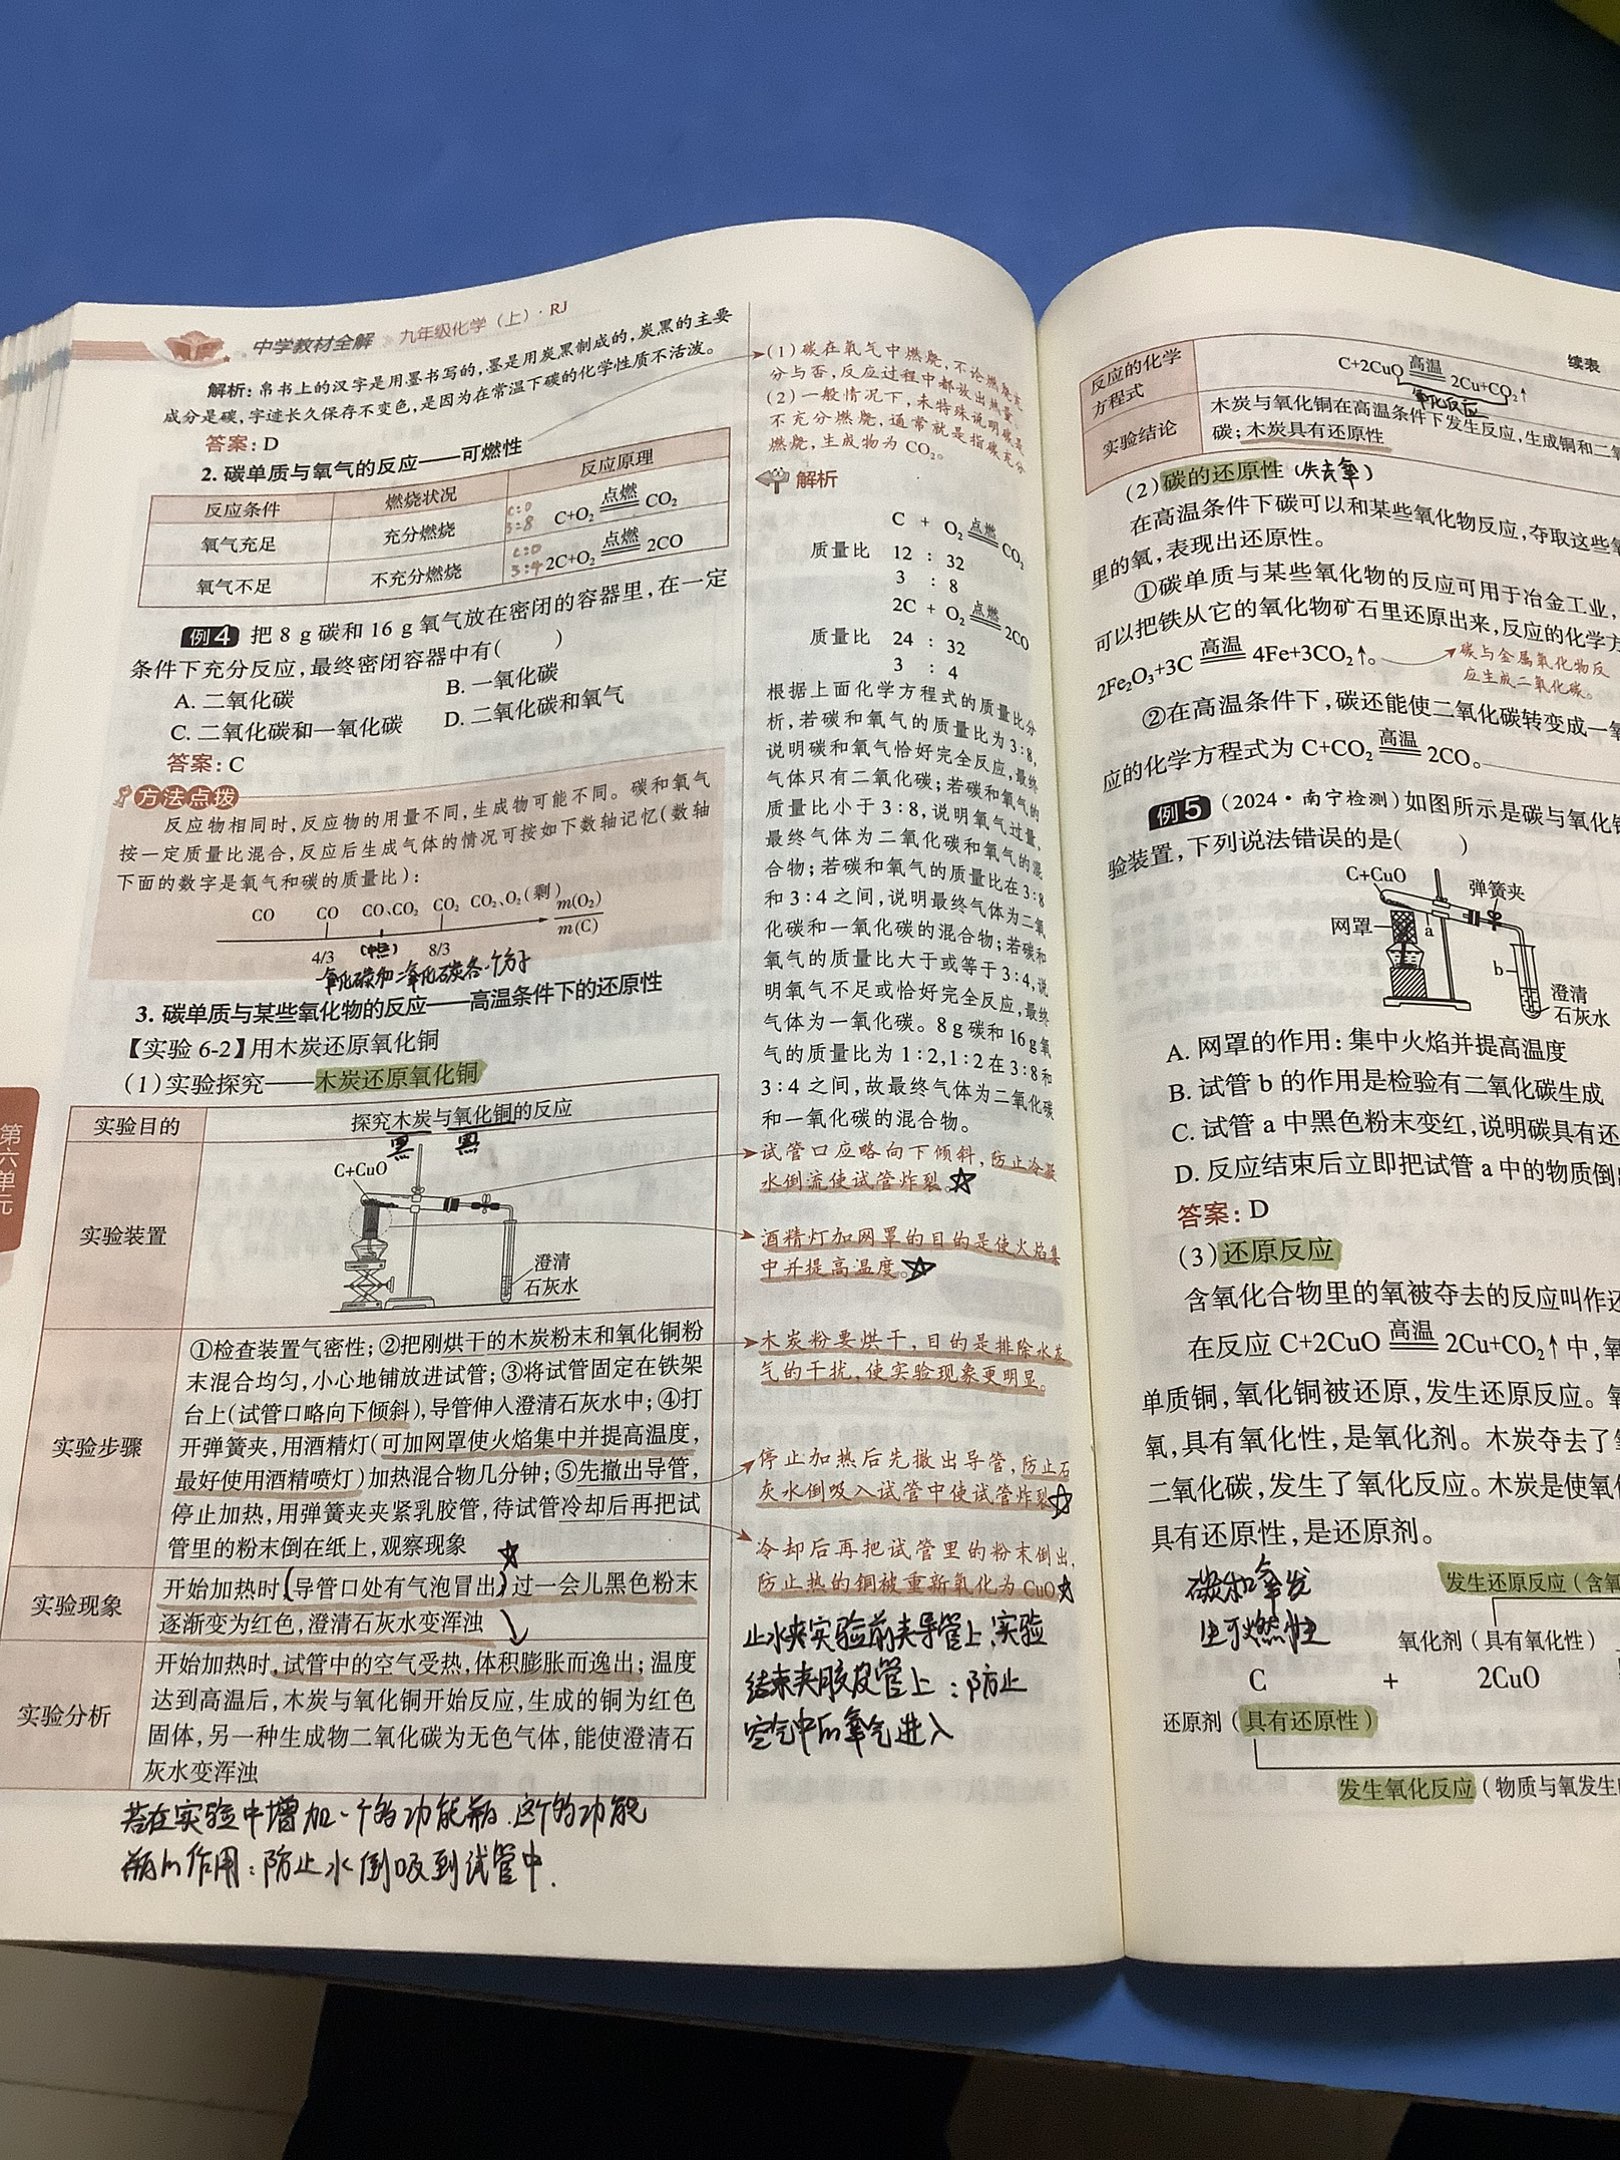 中学教材全解 九年级化学(上)·RJ
解析:帛书上的汉字是用墨书写的,墨是用炭黑制成的,炭黑的主要
成分是碳,字迹长久保存不变色,是因为在常温下碳的化学性质不活泼。
答案:D
2. 碳单质与氧气的反应——可燃性
反应条件 燃烧状况 反应原理
氧气充足 充分燃烧 C:O 3:8 C+O₂ 点燃 CO₂
氧气不足 不充分燃烧 C:O 3:4 2C+O₂ 点燃 2CO
例4 把 8 g 碳和 16 g 氧气放在密闭的容器里,在一定
条件下充分反应,最终密闭容器中有( )
A. 二氧化碳 B. 一氧化碳
C. 二氧化碳和一氧化碳 D. 二氧化碳和氧气
答案:C
方法点拨
反应物相同时,反应物的用量不同,生成物可能不同。碳和氧气
按一定质量比混合,反应后生成气体的情况可按如下数轴记忆(数轴
下面的数字是氧气和碳的质量比):
CO CO CO、CO₂ CO₂ CO₂、O₂(剩) m(O₂)/m(C)
4/3 8/3
一氧化碳和二氧化碳各一个分子
3. 碳单质与某些氧化物的反应——高温条件下的还原性
【实验 6-2】用木炭还原氧化铜
(1)实验探究——木炭还原氧化铜
实验目的 探究木炭与氧化铜的反应
黑 黑
实验装置
C+CuO
澄清
石灰水
实验步骤
①检查装置气密性;②把刚烘干的木炭粉末和氧化铜粉
末混合均匀,小心地铺放进试管;③将试管固定在铁架
台上(试管口略向下倾斜),导管伸入澄清石灰水中;④打
开弹簧夹,用酒精灯(可加网罩使火焰集中并提高温度,
最好使用酒精喷灯)加热混合物几分钟;⑤先撤出导管,
停止加热,用弹簧夹夹紧乳胶管,待试管冷却后再把试
管里的粉末倒在纸上,观察现象
实验现象
开始加热时(导管口处有气泡冒出)过一会儿黑色粉末
逐渐变为红色,澄清石灰水变浑浊
实验分析
开始加热时,试管中的空气受热,体积膨胀而逸出;温度
达到高温后,木炭与氧化铜开始反应,生成的铜为红色
固体,另一种生成物二氧化碳为无色气体,能使澄清石
灰水变浑浊
若在实验中增加一个多功能瓶,这个多功能
瓶的作用:防止水倒吸到试管中.
第六单元
(1)碳在氧气中燃烧,不论燃烧充
分与否,反应过程中都放出热量。
(2)一般情况下,未特殊说明碳是
不充分燃烧,通常就是指碳充分
燃烧,生成物为 CO₂。
解析
C + O₂ 点燃 CO₂
质量比 12 : 32
3 : 8
2C + O₂ 点燃 2CO
质量比 24 : 32
3 : 4
根据上面化学方程式的质量比分
析,若碳和氧气的质量比为 3:8,
说明碳和氧气恰好完全反应,最终
气体只有二氧化碳;若碳和氧气的
质量比小于 3:8,说明氧气过量,
最终气体为二氧化碳和氧气的混
合物;若碳和氧气的质量比在 3:8
和 3:4 之间,说明最终气体为二氧
化碳和一氧化碳的混合物;若碳和
氧气的质量比大于或等于 3:4,说
明氧气不足或恰好完全反应,最终
气体为一氧化碳。8 g 碳和 16 g 氧
气的质量比为 1:2,1:2 在 3:8 和
3:4 之间,故最终气体为二氧化碳
和一氧化碳的混合物。
试管口应略向下倾斜,防止冷凝
水倒流使试管炸裂。
酒精灯加网罩的目的是使火焰集
中并提高温度。
木炭粉要烘干,目的是排除水蒸
气的干扰,使实验现象更明显。
停止加热后先撤出导管,防止石
灰水倒吸入试管中使试管炸裂
冷却后再把试管里的粉末倒出,
防止热的铜被重新氧化为CuO
止水夹实验前夹导管上,实验
结束夹胶皮管上:防止
空气中的氧气进入
续表
反应的化学
方程式
C+2CuO 高温 2Cu+CO₂↑
氧化反应
实验结论
木炭与氧化铜在高温条件下发生反应,生成铜和二氧
碳;木炭具有还原性
(2)碳的还原性(失去氧)
在高温条件下碳可以和某些氧化物反应,夺取这些氧
里的氧,表现出还原性。
①碳单质与某些氧化物的反应可用于冶金工业,
可以把铁从它的氧化物矿石里还原出来,反应的化学方
2Fe₂O₃+3C 高温 4Fe+3CO₂↑。
碳与金属氧化物反
应生成二氧化碳。
②在高温条件下,碳还能使二氧化碳转变成一氧
应的化学方程式为 C+CO₂ 高温 2CO。
例5 (2024·南宁检测)如图所示是碳与氧化铜
验装置,下列说法错误的是( )
C+CuO
弹簧夹
网罩
a
b
澄清
石灰水
A. 网罩的作用:集中火焰并提高温度
B. 试管 b 的作用是检验有二氧化碳生成
C. 试管 a 中黑色粉末变红,说明碳具有还
D. 反应结束后立即把试管 a 中的物质倒出
答案:D
(3)还原反应
含氧化合物里的氧被夺去的反应叫作还
在反应 C+2CuO 高温 2Cu+CO₂↑中,氧
单质铜,氧化铜被还原,发生还原反应。氧
氧,具有氧化性,是氧化剂。木炭夺去了氧
二氧化碳,发生了氧化反应。木炭是使氧化
具有还原性,是还原剂。
碳和氧发
生可燃性
发生还原反应(含氧
氧化剂(具有氧化性)
C + 2CuO
还原剂(具有还原性)
发生氧化反应(物质与氧发生